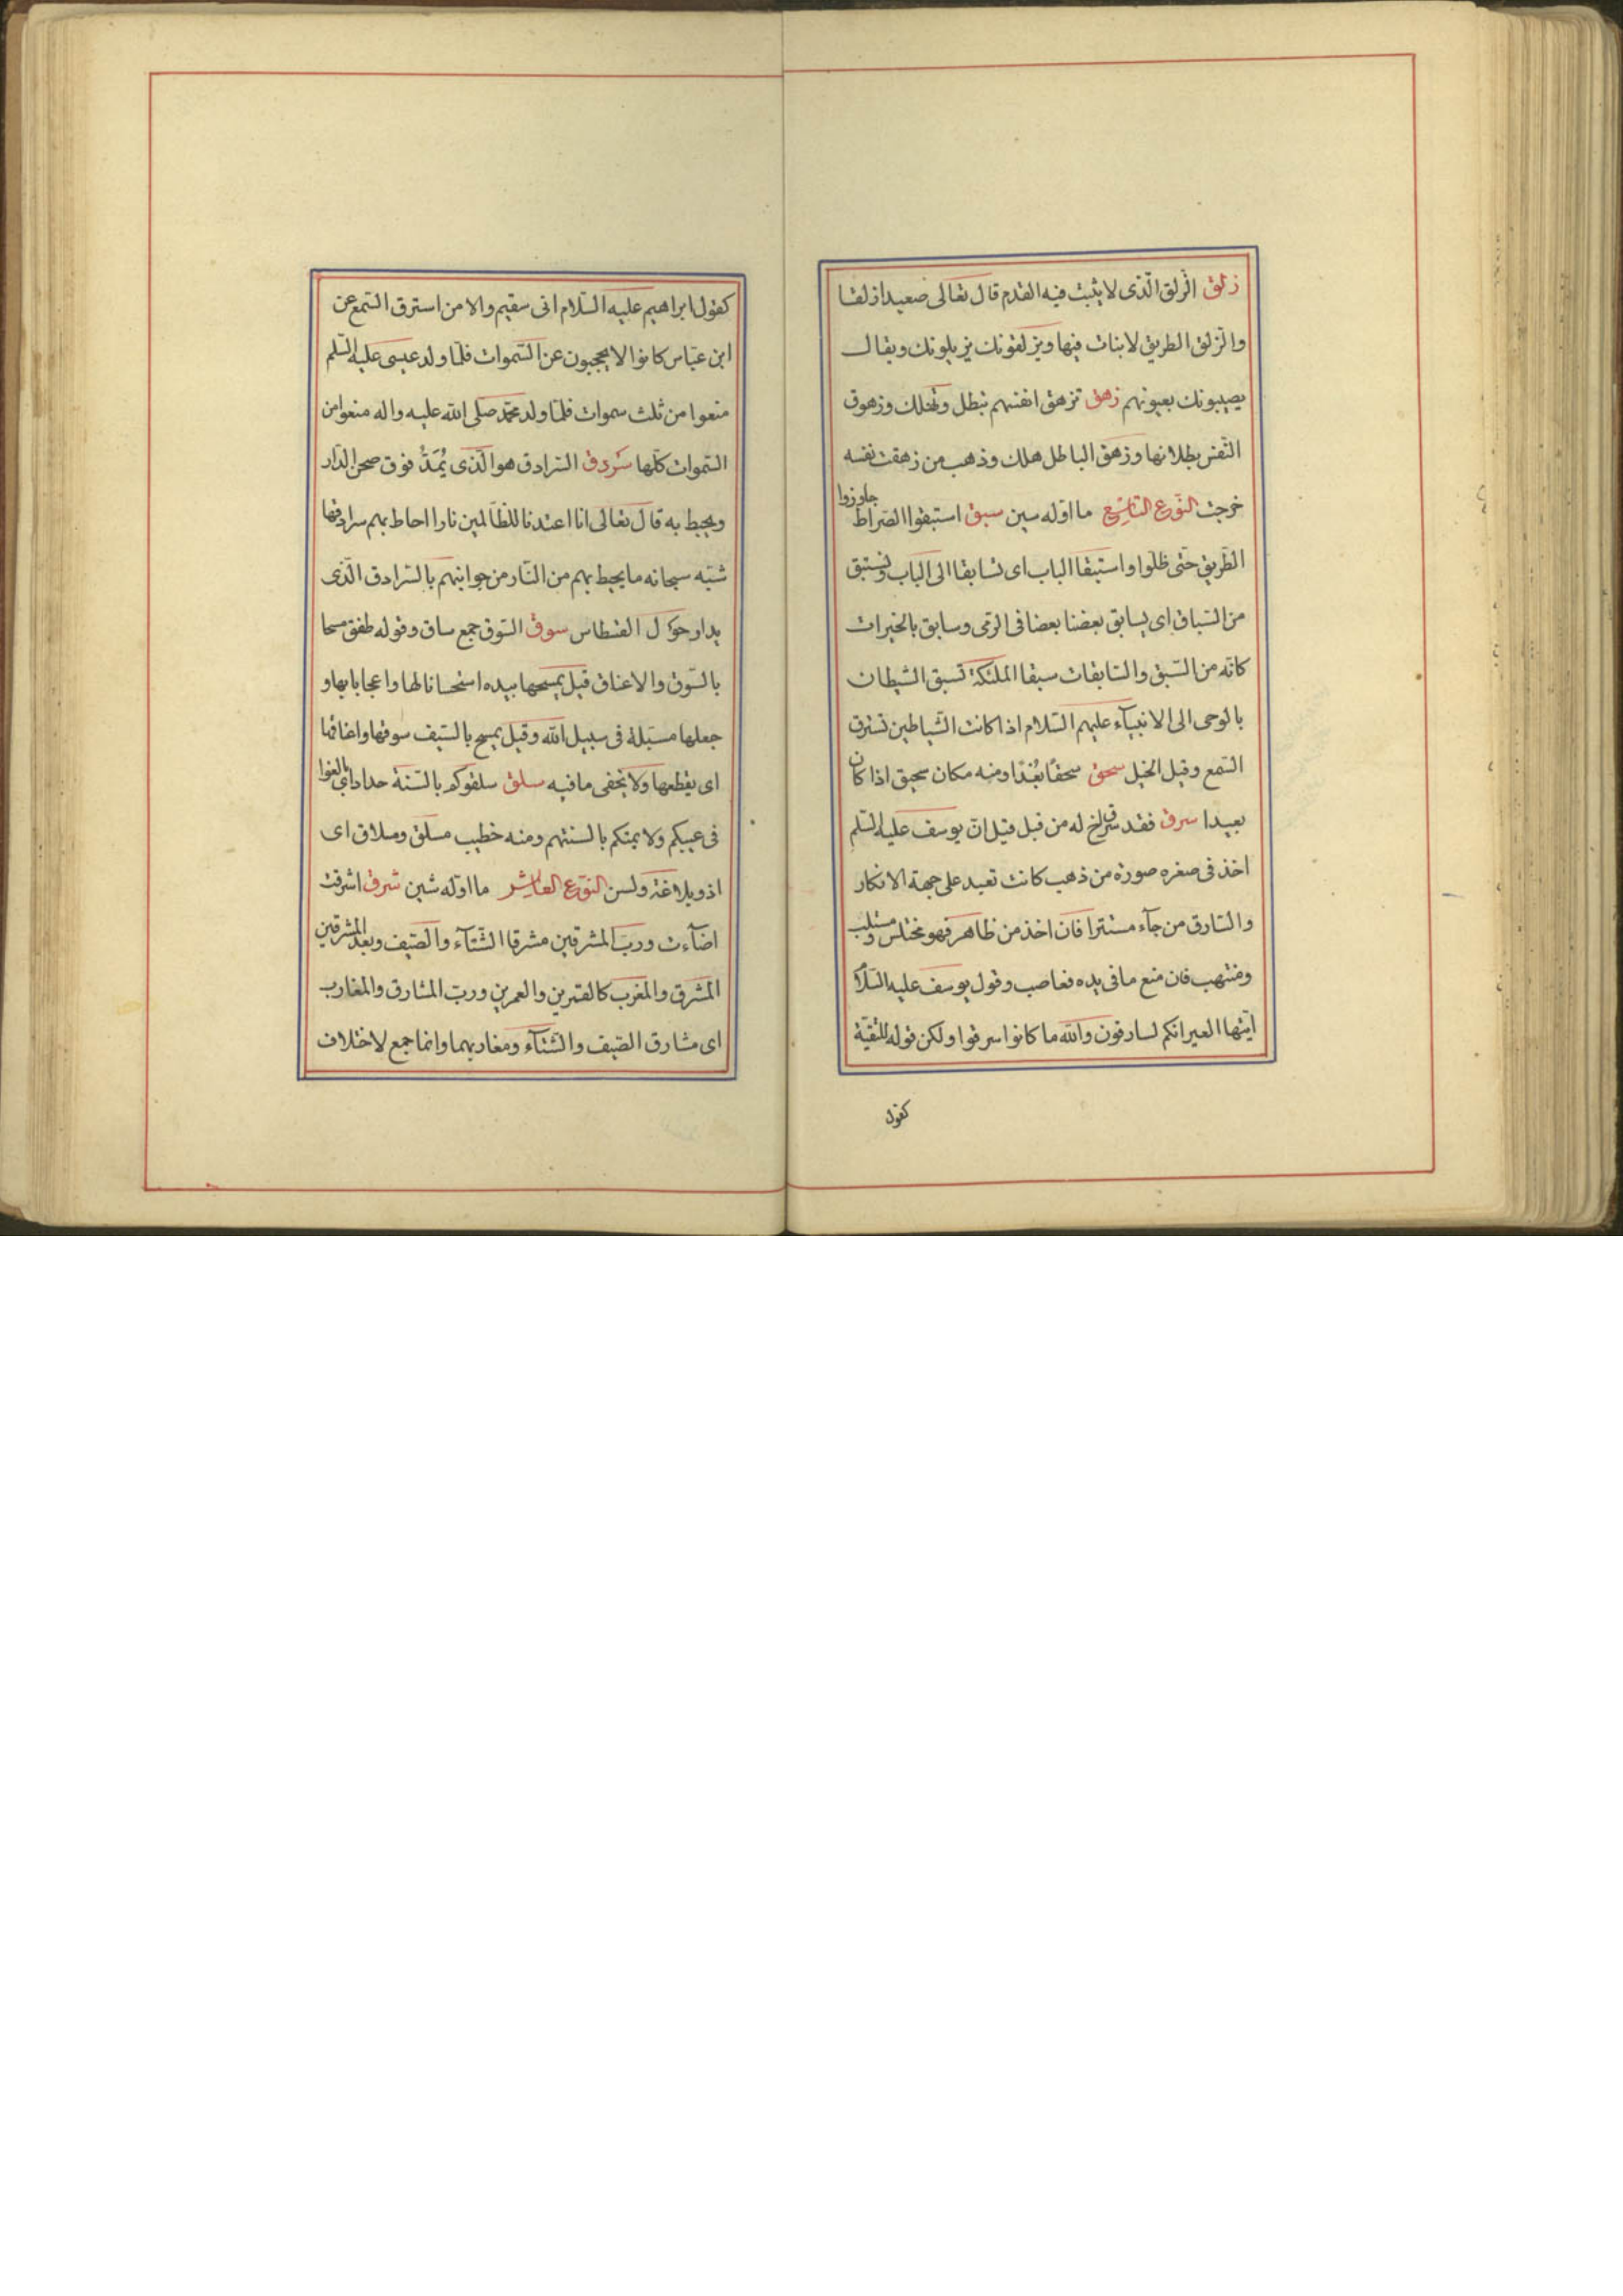 زلق الزلق الّذى لا يثبت فيه القدم قال تعالى صعيدا زلقا
والزلق الطريق لا نبات فيها ويزلقونك يزيلونك ويقال
يصيبونك بعيونهم زهق تزهق انفسهم تبطل وتهلك وزهوق
النّفس بطلانها وزهق الباطل هلك وذهب من زهقت نفسه
خرجت النّوع التاسع ما اوّله سين سبق استبقوا الصّراط جاوزوا
الطّريق حتّى ظلّوا واستبقا الباب اى تسابقا الى الباب ونستبق
من السّباق اى يسابق بعضنا بعضا فى الرّمى وسابق بالخيرات
كانّه من السّبق والسّابقات سبقا الملئكة تسبق الشيطان
بالوحى الى الانبيآء عليهم السّلام اذا كانت الشّياطين تسترق
السّمع وقيل الخيل سحق سحقًا بُعْدًا ومنه مكان سحيق اذا كان
بعيدا سرق فقد سرق اخ له من قبل قيل انّ يوسف عليه السّلم
اخذ فى صغره صورة من ذهب كانت تعبد على جهة الانكار
والسّارق من جآء مستترا فان اخذ من ظاهر فهو مختلس ومستلب
ومنتهب فان منع ما فى يده فغاصب وقول يوسف عليه السّلام
ايّتها العير انكم لسارقون والله ما كانوا سرقوا ولكن قوله للتقيّة
كقول
كقول ابراهيم عليه السّلام انى سقيم والا من استرق السّمع عن
ابن عبّاس كانوا لا يحجبون عن السّموات فلمّا ولد عيسى عليه السّلم
منعوا من ثلث سموات فلمّا ولد محمّد صلى الله عليه واله منعوا من
السّموات كلّها سَردق السّرادق هو الّذى يُمَدُّ فوق صحن الدّار
ويحيط به قال تعالى انا اعتدنا للظّالمين نارا احاط بهم سرادقها
شبّه سبحانه ما يحيط بهم من النّار من جوانبهم بالسّرادق الّذى
يدار حول الفسطاس سوق السّوق جمع ساق وقوله طفق مسحا
بالسّوق والاعناق قيل يمسحها بيده استحسانا لها واعجابا بها و
جعلها مسبّلة فى سبيل الله وقيل يمسح بالسّيف سوقها واعناقها
اى يقطعها ولا يخفى ما فيه سلق سلقوكم بالسنة حداد اى بالغوا
فى عيبكم ولايمتكم بالسنتهم ومنه خطيب مسلق وسلاق اى
اذو بلاغة ولسن النّوع العاشر ما اوّله شين شرق اشرقت
اضآءت وربّ المشرقين مشرقا الشّتآء والصّيف وبعد المشرقين
المشرق والمغرب كالقمرين والعمرين وربّ المشارق والمغارب
اى مشارق الصّيف والشّتآء ومغاربهما وانما جمع لاختلاف